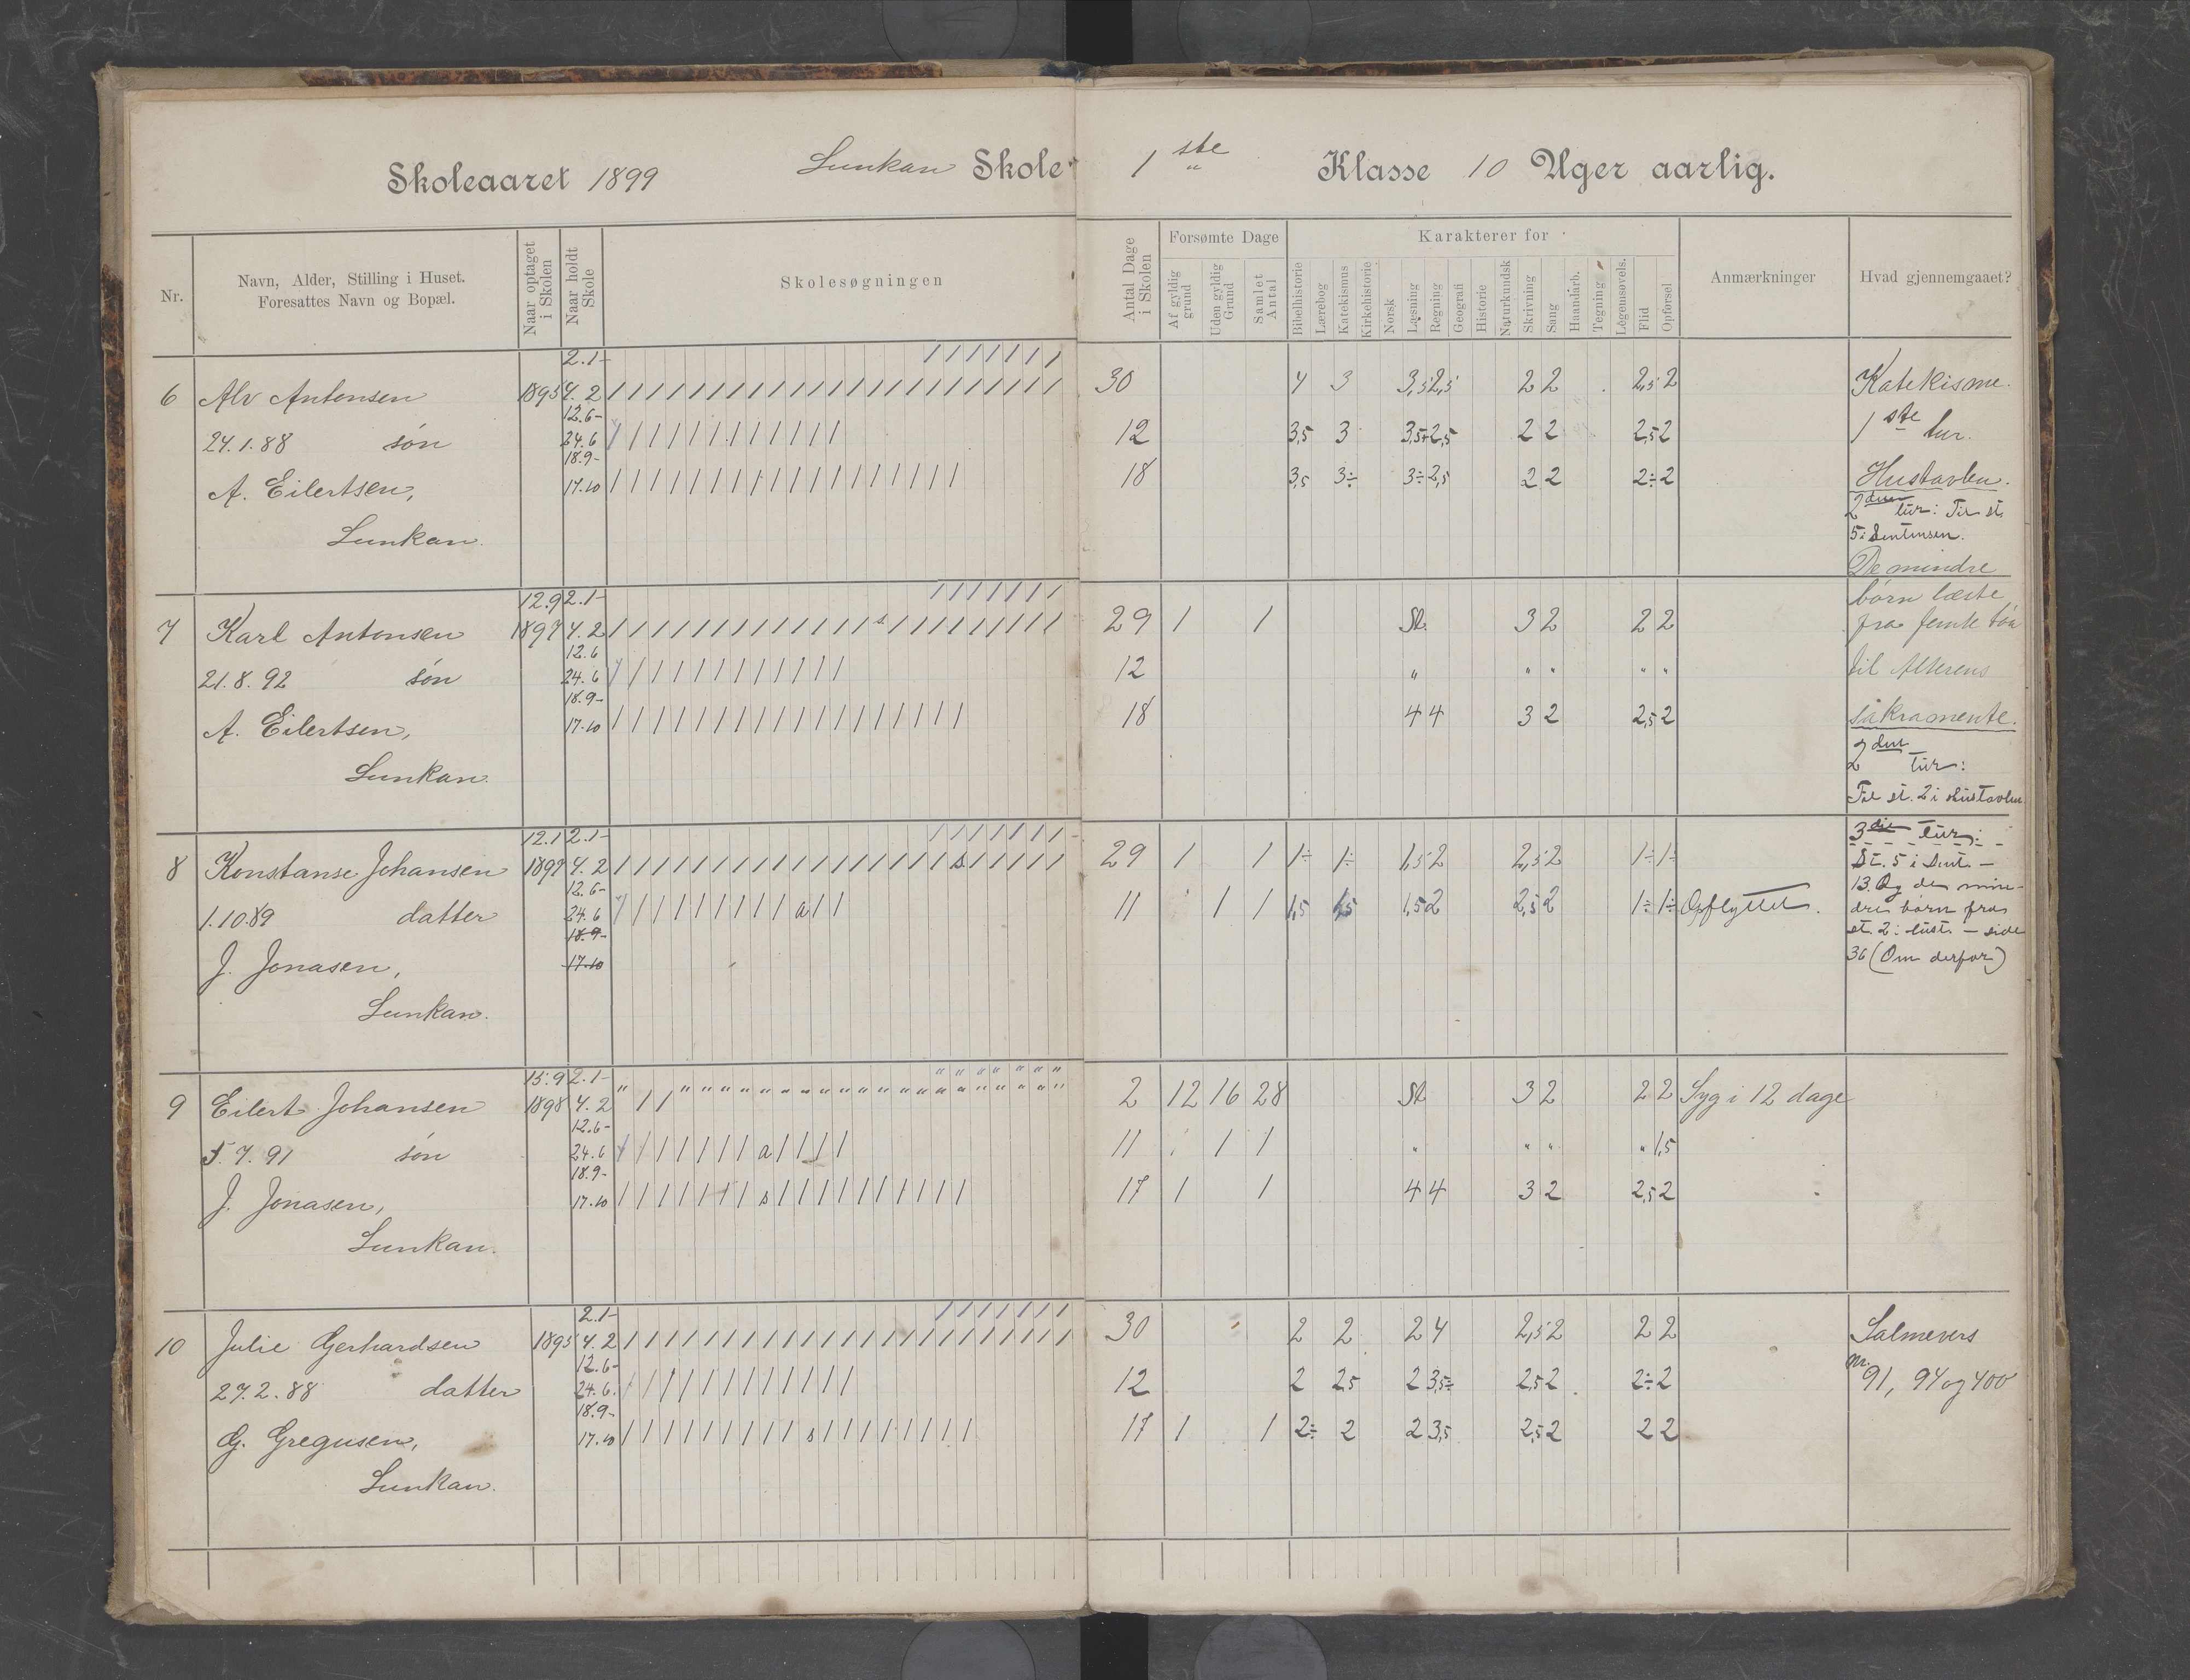 Skoleaaret 1899 Lunkan Skole 1 ste Klasse 10 Uger aarlig.
Nr. Navn, Alder, Stilling i Huset. Foresattes Navn og Bopæl. Naar optaget i Skolen Naar holdt Skole Skolesøgningen Antal Dage i Skolen Forsømte Dage Af gyldig grund Uden gyldig Grund Samlet Antal Karakterer for Bibelhistorie Lærebog Katekismus Kirkehistorie Norsk Læsning Regning Geografi Historie Naturkundsk Skrivning Sang Haandarb. Tegning Legemsøvels. Flid Opførsel Anmærkninger Hvad gjennemgaaet?
2.1- / / / / / / /
6 Alv Antonsen 1895 4.2 / / / / / / / / / / / / / / / / / / / / / / / 30 4 3 3,5 2,5 2 2 2,5 2 Katekisme.
12.6-
24.1.88 søn 24.6 / / / / / / / / / / / / 12 3,5 3 3,5+ 2,5 2 2 2,5 2 1 ste tur.
18.9-
A. Eilertsen, 17.10 / / / / / / / / / / / / / / / / / / 18 3,5 3÷ 3÷ 2,5 2 2 2÷ 2 Hustavlen.
2 den tur: Til st.
Lunkan. 5 i Sentensen.
De mindre
12.9 2.1- / / / / / / / børn læste
7 Karl Antonsen 1897 4.2 / / / / / / / / / / / / / s / / / / / / / / / 29 1 1 St. 3 2 2 2 fra femte bøn
12.6
21.8.92 søn 24.6 / / / / / / / / / / / / 12 " " " " " til Alterens
18.9-
A. Eilertsen, 17.10 / / / / / / / / / / / / / / / / / / 18 4 4 3 2 2,5 2 sakramente.
2 den tur:
Lunkan.
Til st. 2 i Hustavlen
12.1 2.1- / / / / / / / 3 die tur:
8 Konstanse Johansen 1897 4.2 / / / / / / / / / / / / / / / / / s / / / / / 29 1 1 1÷ 1÷ 1,5 2 2,5 2 1÷ 1÷ St. 5 i Sent. -
12.6- 13. Og de min-
1.10.89 datter 24.6 / / / / / / / / / a / / 11 1 1 1,5 1,5 1,5 2 2,5 2 1÷ 1÷ Opflyttet. dre børn fra
18.9- st. 2 i Hust. - side
J. Jonasen, 17.10 36 (Om derfor)
Lunkan.
15.9 2.1- " " " " " " "
9 Eilert Johansen 1898 4.2 " / / " " " " " " " " " " " " " " " " " " " " 2 12 16 28 St 3 2 2 2 Syg i 12 dage
12.6-
5.7.91 søn 24.6 / / / / / / / a / / / / 11 1 1 " " " " 1,5
18.9-
J. Jonasen, 17.10 / / / / / / / s / / / / / / / / / / 17 1 1 4 4 3 2 2,5 2
Lunkan.
2.1- / / / / / / /
10 Julie Gerhardsen 1895 4.2 / / / / / / / / / / / / / / / / / / / / / / / 30 2 2 2 4 2,5 2 2 2 Salmevers
12.6- nr.
27.2.88 datter 24.6. / / / / / / / / / / / / 12 2 2,5 2 3,5÷ 2,5 2 2÷ 2 91, 94 og 400
18.9-
G. Gregusen, 17.10 / / / / / / / / / s / / / / / / / / 17 1 1 2÷ 2 2 3,5 2,5 2 2 2
Lunkan.